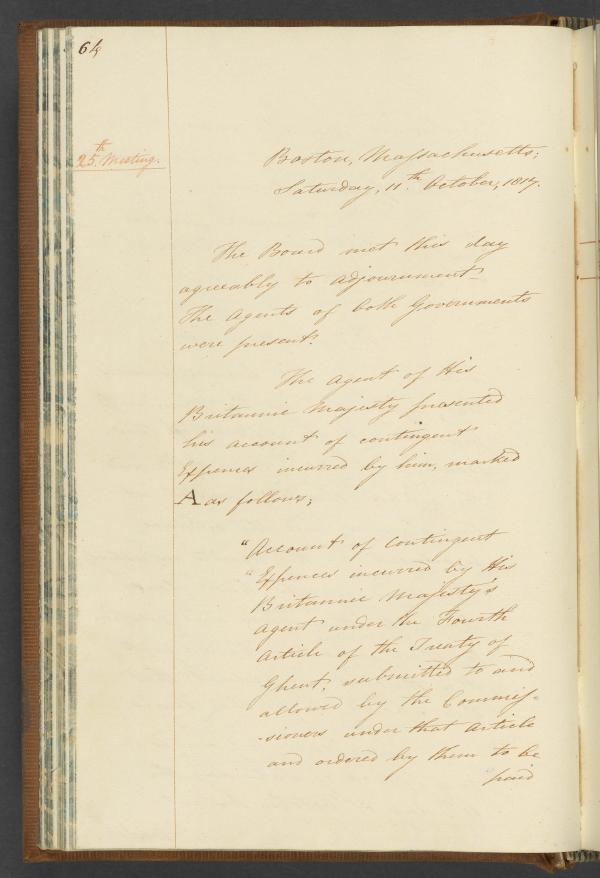 64
25.th Meeting.
Boston, Massachusetts;
Saturday, 11.th October, 1817.
The Board met this day
agreeably to adjournment.
The Agents of both Governments
were present.
The Agent of His
Britannic Majesty presented
his account of contingent
Expences incurred by him, marked
A as follows;
"Account of Contingent
"Expences incurred by His
Britannic Majesty's
Agent under the Fourth
Article of the Treaty of
Ghent, submitted to and
allowed by the Commis-
-sioners under that Article
and ordered by them to be
paid